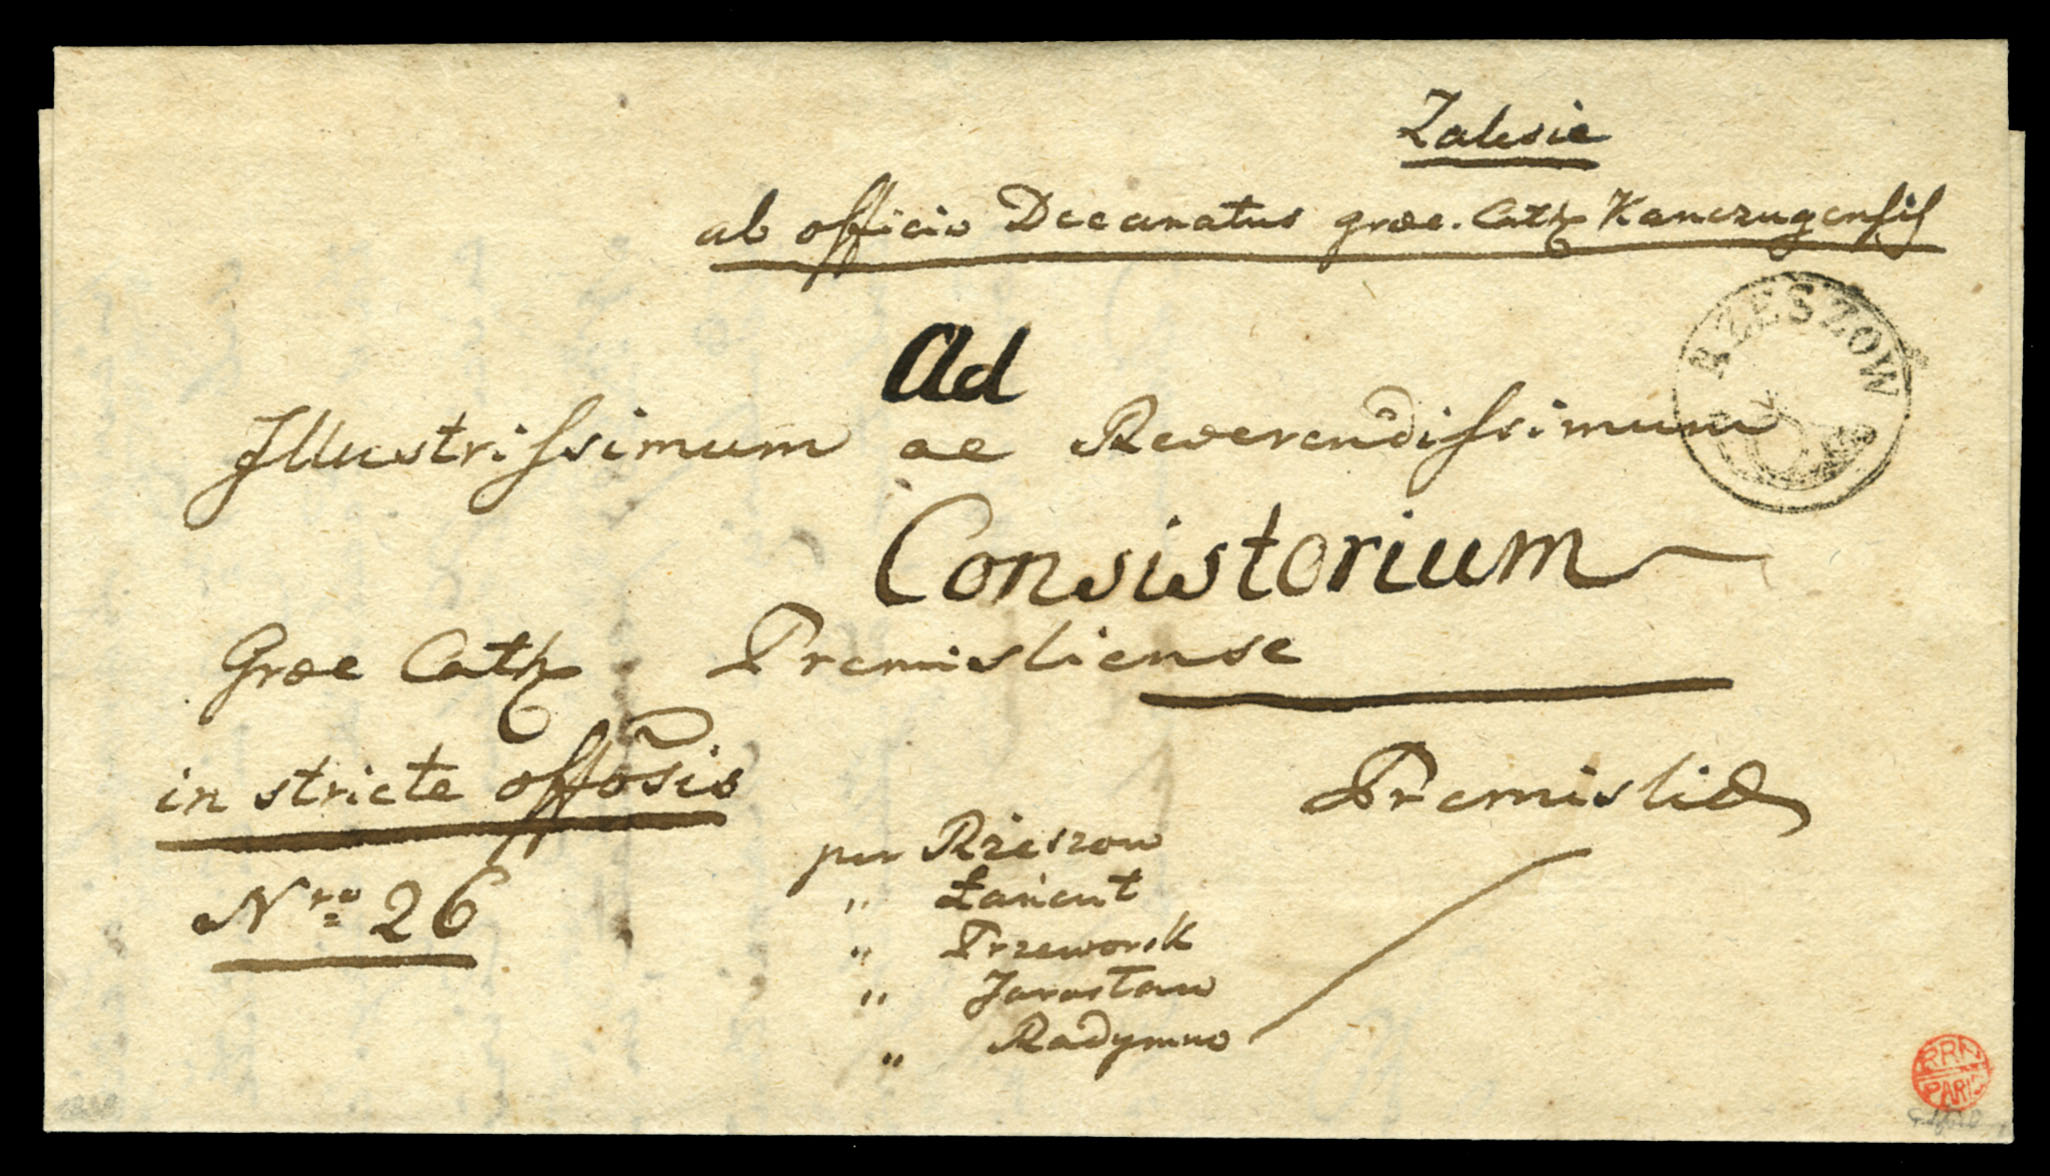 Zalesie
ab officio Decanatus græc. Cath Kanczugensis
RZESZOW
Ad
Illustrissimum ac Reverendissimum
Consistorium
Græc Cath Premisliense
in stricte offosis
Premisliæ
Nro 26
per Rzeszow
" Łańcut
" Przeworsk
" Jarosław
" Radymno
PARIS